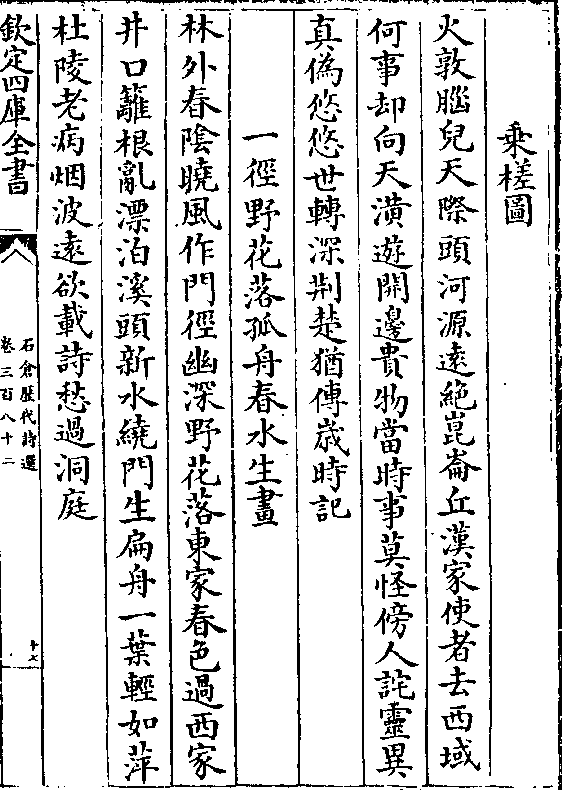 乘槎圖
火敦腦兒天際頭河源遠絶崑崙丘漢家使者去西域
何事却向天潢遊開邊貴物當時事莫怪傍人詫靈異
真偽悠悠世轉深荆楚猶傳歳時記
一徑野花落孤舟春水生畫
林外春陰曉風作門徑幽深野花落東家春色過西家
井口籬根亂漂泊溪頭新水繞門生扁舟一葉輕如萍
杜陵老病烟波逺欲載詩愁過洞庭
欽定四庫全書
石倉歴代詩選
卷三百八十二
十七